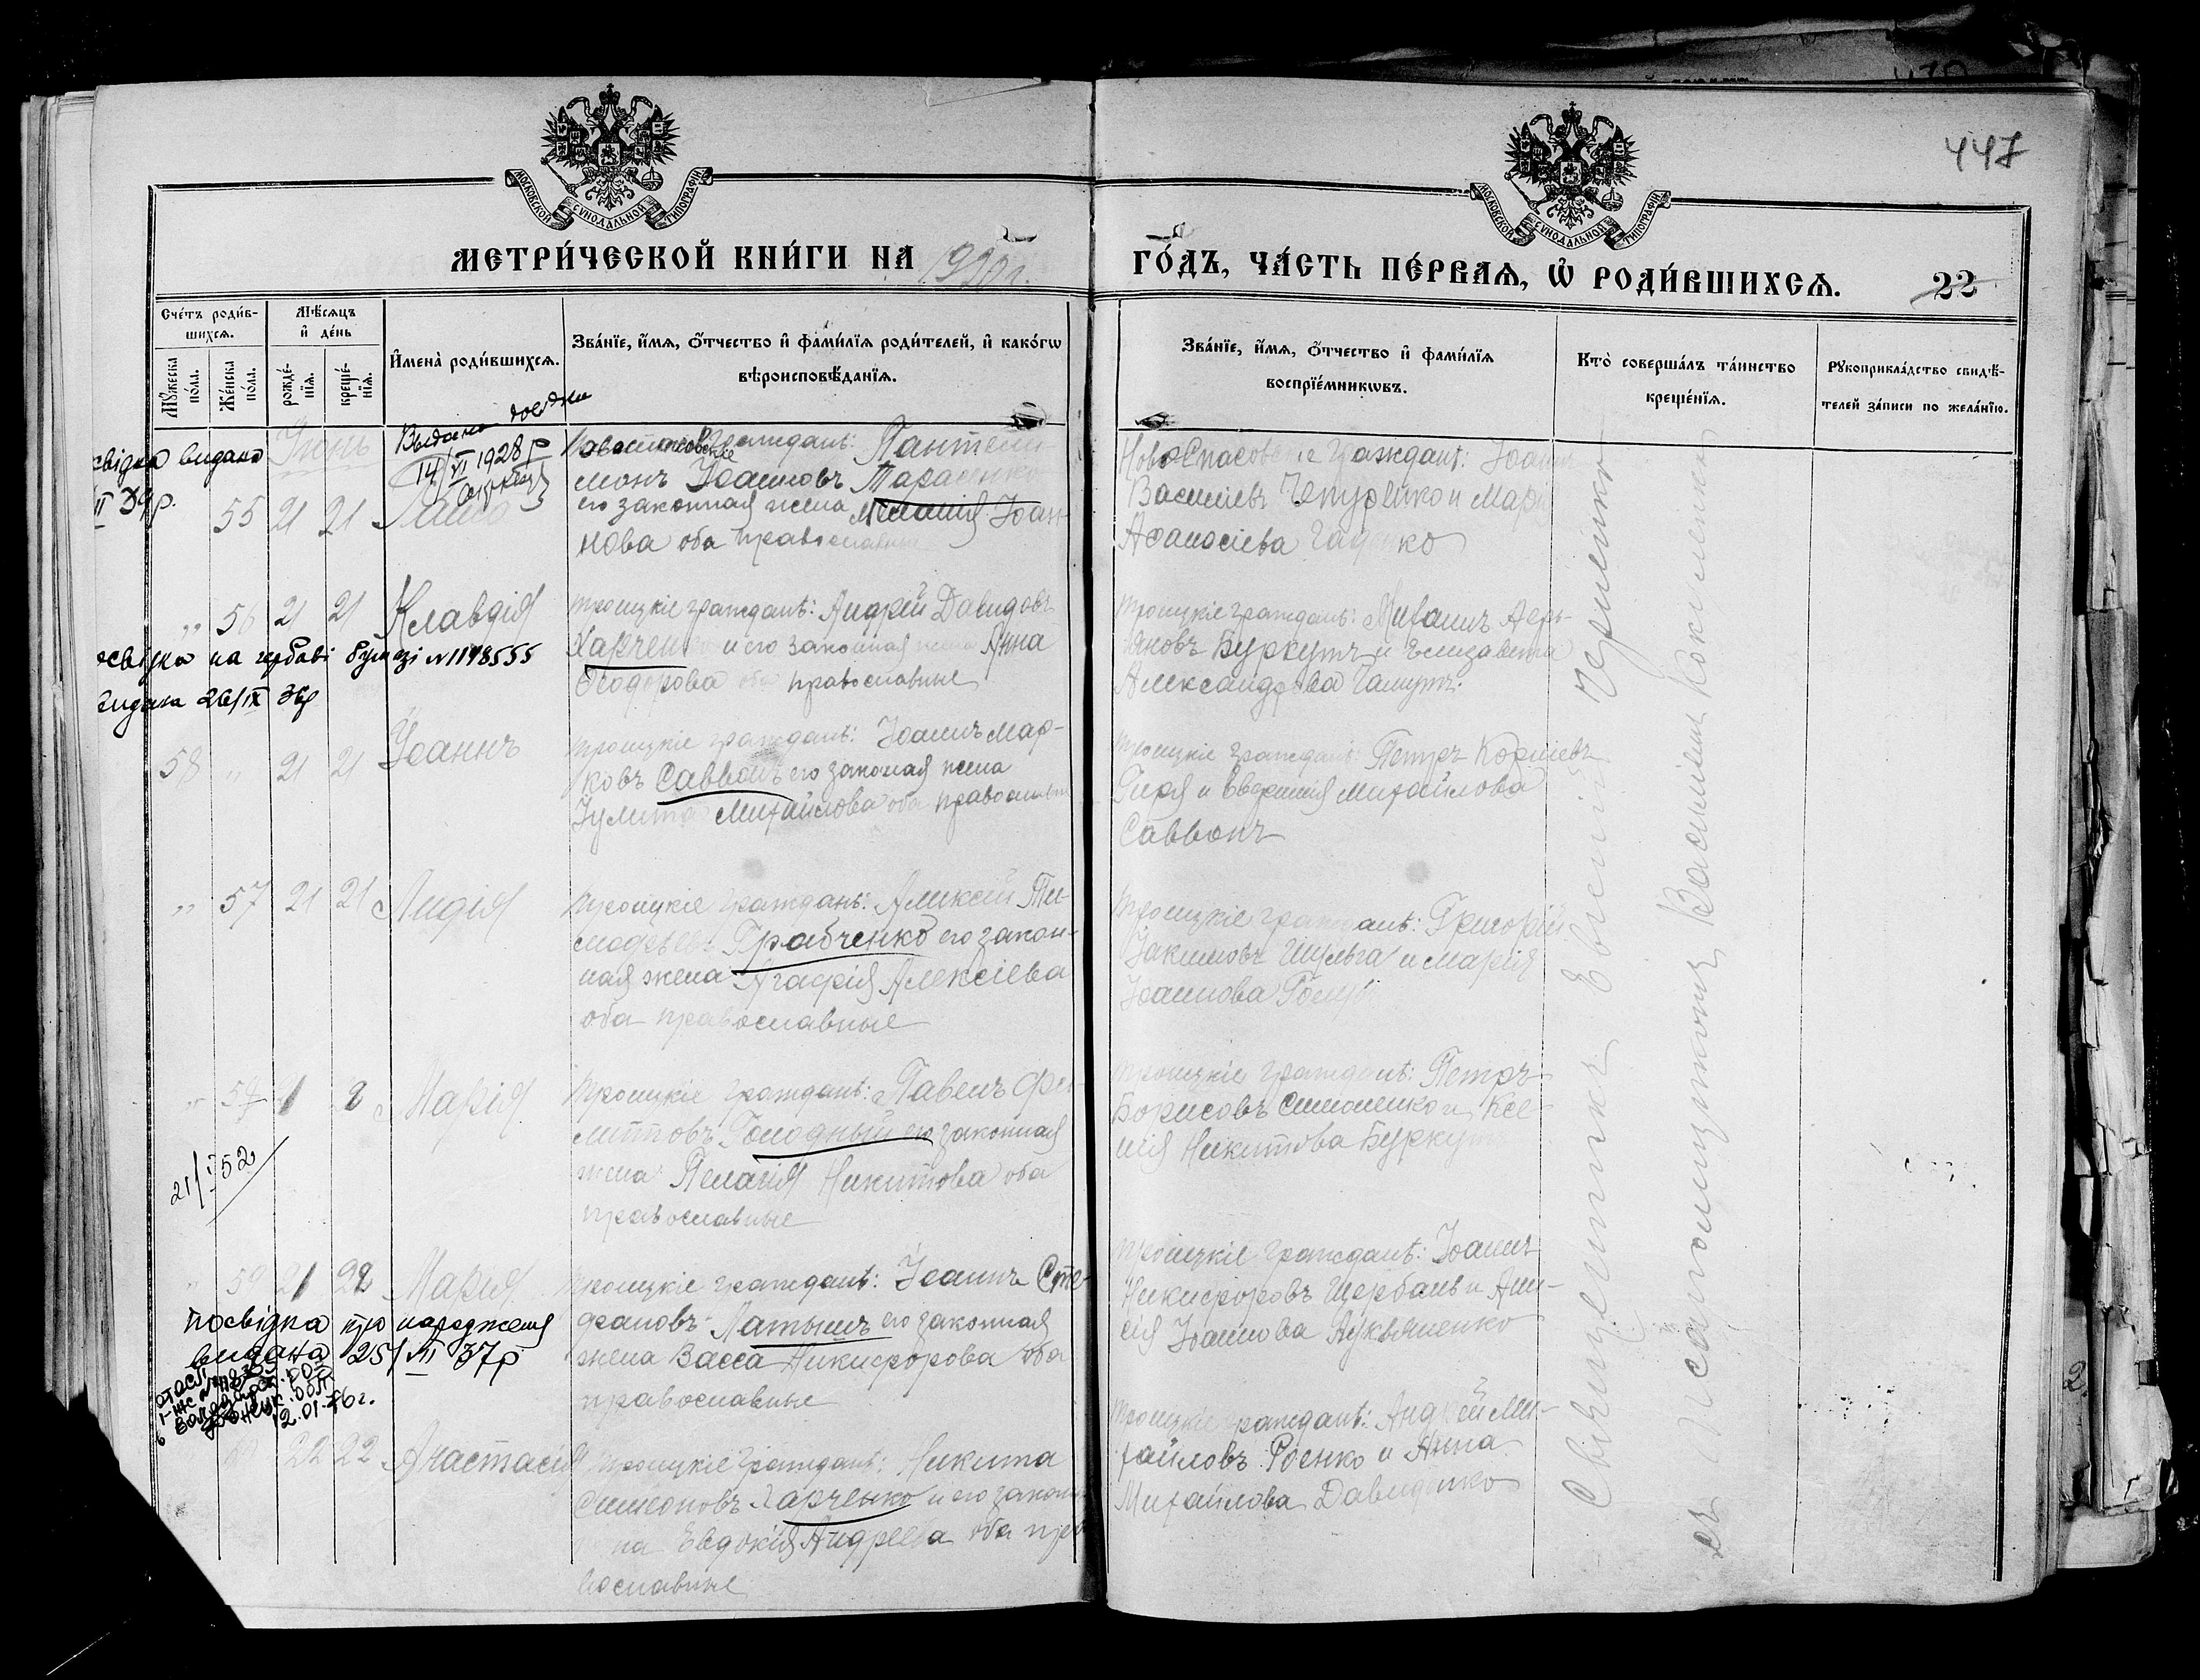 447
МОСКОВСКОЙ СѴНОДАЛЬНОЙ ТИПОГРАФІИ
МОСКОВСКОЙ СѴНОДАЛЬНОЙ ТИПОГРАФІИ
МЕТРИ́ЧЕСКОЙ КНИ́ГИ НА 1920 г.
ГО́ДЪ, ЧА́СТЬ ПЕ́РВАЯ, Ѡ҆ РОДИ́ВШИХСЯ.
22
Сче́тъ роди́в-
шихся.
Мꙋ́жеска по́ла.
Же́нска по́ла.
Мѣ́сяцъ
и҆ де́нь
рожде́-
нїя.
креще́-
нїя.
И҆мена̀ роди́вшихся.
Зва́нїе, и҆́мя, ѻ҆́тчество и҆ фами́лїя роди́телей, и҆ како́гѡ
вѣроисповѣ́данїя.
Зва́нїе, и҆́мя, ѻ҆́тчество и҆ фами́лїя
воспрїе́мникѡвъ.
Кто̀ соверша́лъ та́инство
креще́нїя.
Рꙋкоприкла́дство свидѣ́-
телей за́писи по жела́нїю.
Іюнь
Выдано
14/VI 1928 р
видано
VI 34р.
55 21 21
граждане: Пантели-
монъ Іоанновъ Тарасенко
его законная жена Іоан-
нова оба православные
НовоСпасовскіе граждане: Іоаннъ
Васильевъ Чепуренко и Марія
Аѳанасіева
„ 56 21 21 Клавдія
Троицкіе граждане: Андрей Давидовъ
Харченко и его законная жена Анна
Ѳеодорова оба православные
Троицкіе граждане: Михаилъ
Буркутъ и Елизавета
Александрова
на гербові бумазі №1198555
видана 26/IX 34р
58 „ 21 21 Іоаннъ
Троицкіе граждане: Іоаннъ Мар-
ковъ Саввонъ его законая жена
Іулита Михайлова оба православные
Троицкіе граждане: Петръ Корніевъ
Гиря и Михайлова
Саввонъ
„ 57 21 21 Лидія
Троицкіе граждане: Алексѣй Ти-
моѳеевъ Грабченко его закон-
ная жена Агафія Алексіева
оба православные
Троицкіе граждане: Григорій
Іакимовъ Шульга и Марія
Іоаннова
Марія
Троицкіе граждане: Павелъ Фи-
липповъ Голодный его законная
жена Пелагія Никитова оба
православные
Троицкіе граждане: Петръ
Борисовъ Симоненко и Ксе-
нія Никитова Буркутъ
21/I 52
59 21 22 Марія
Троицкіе граждане: Іоаннъ Сте-
фановъ Латышъ его законная
жена Васса Никифорова оба
православные
Троицкіе граждане: Іоаннъ
Никифоровъ Щербань и Ани-
сія Іоаннова Лукьяненко
Посвідка про народження
видана 25/VII 37р
12.01.76г.
22 22 Анастасія
Троицкіе граждане: Никита
Симеоновъ Харченко и его законная
Евдокія Андреева оба пра-
вославные
Троицкіе граждане: Андрей Ми-
хайловъ Роенко и Анна
Михайлова Давиденко
Священникъ Евгеній
съ псаломщикомъ Василіемъ